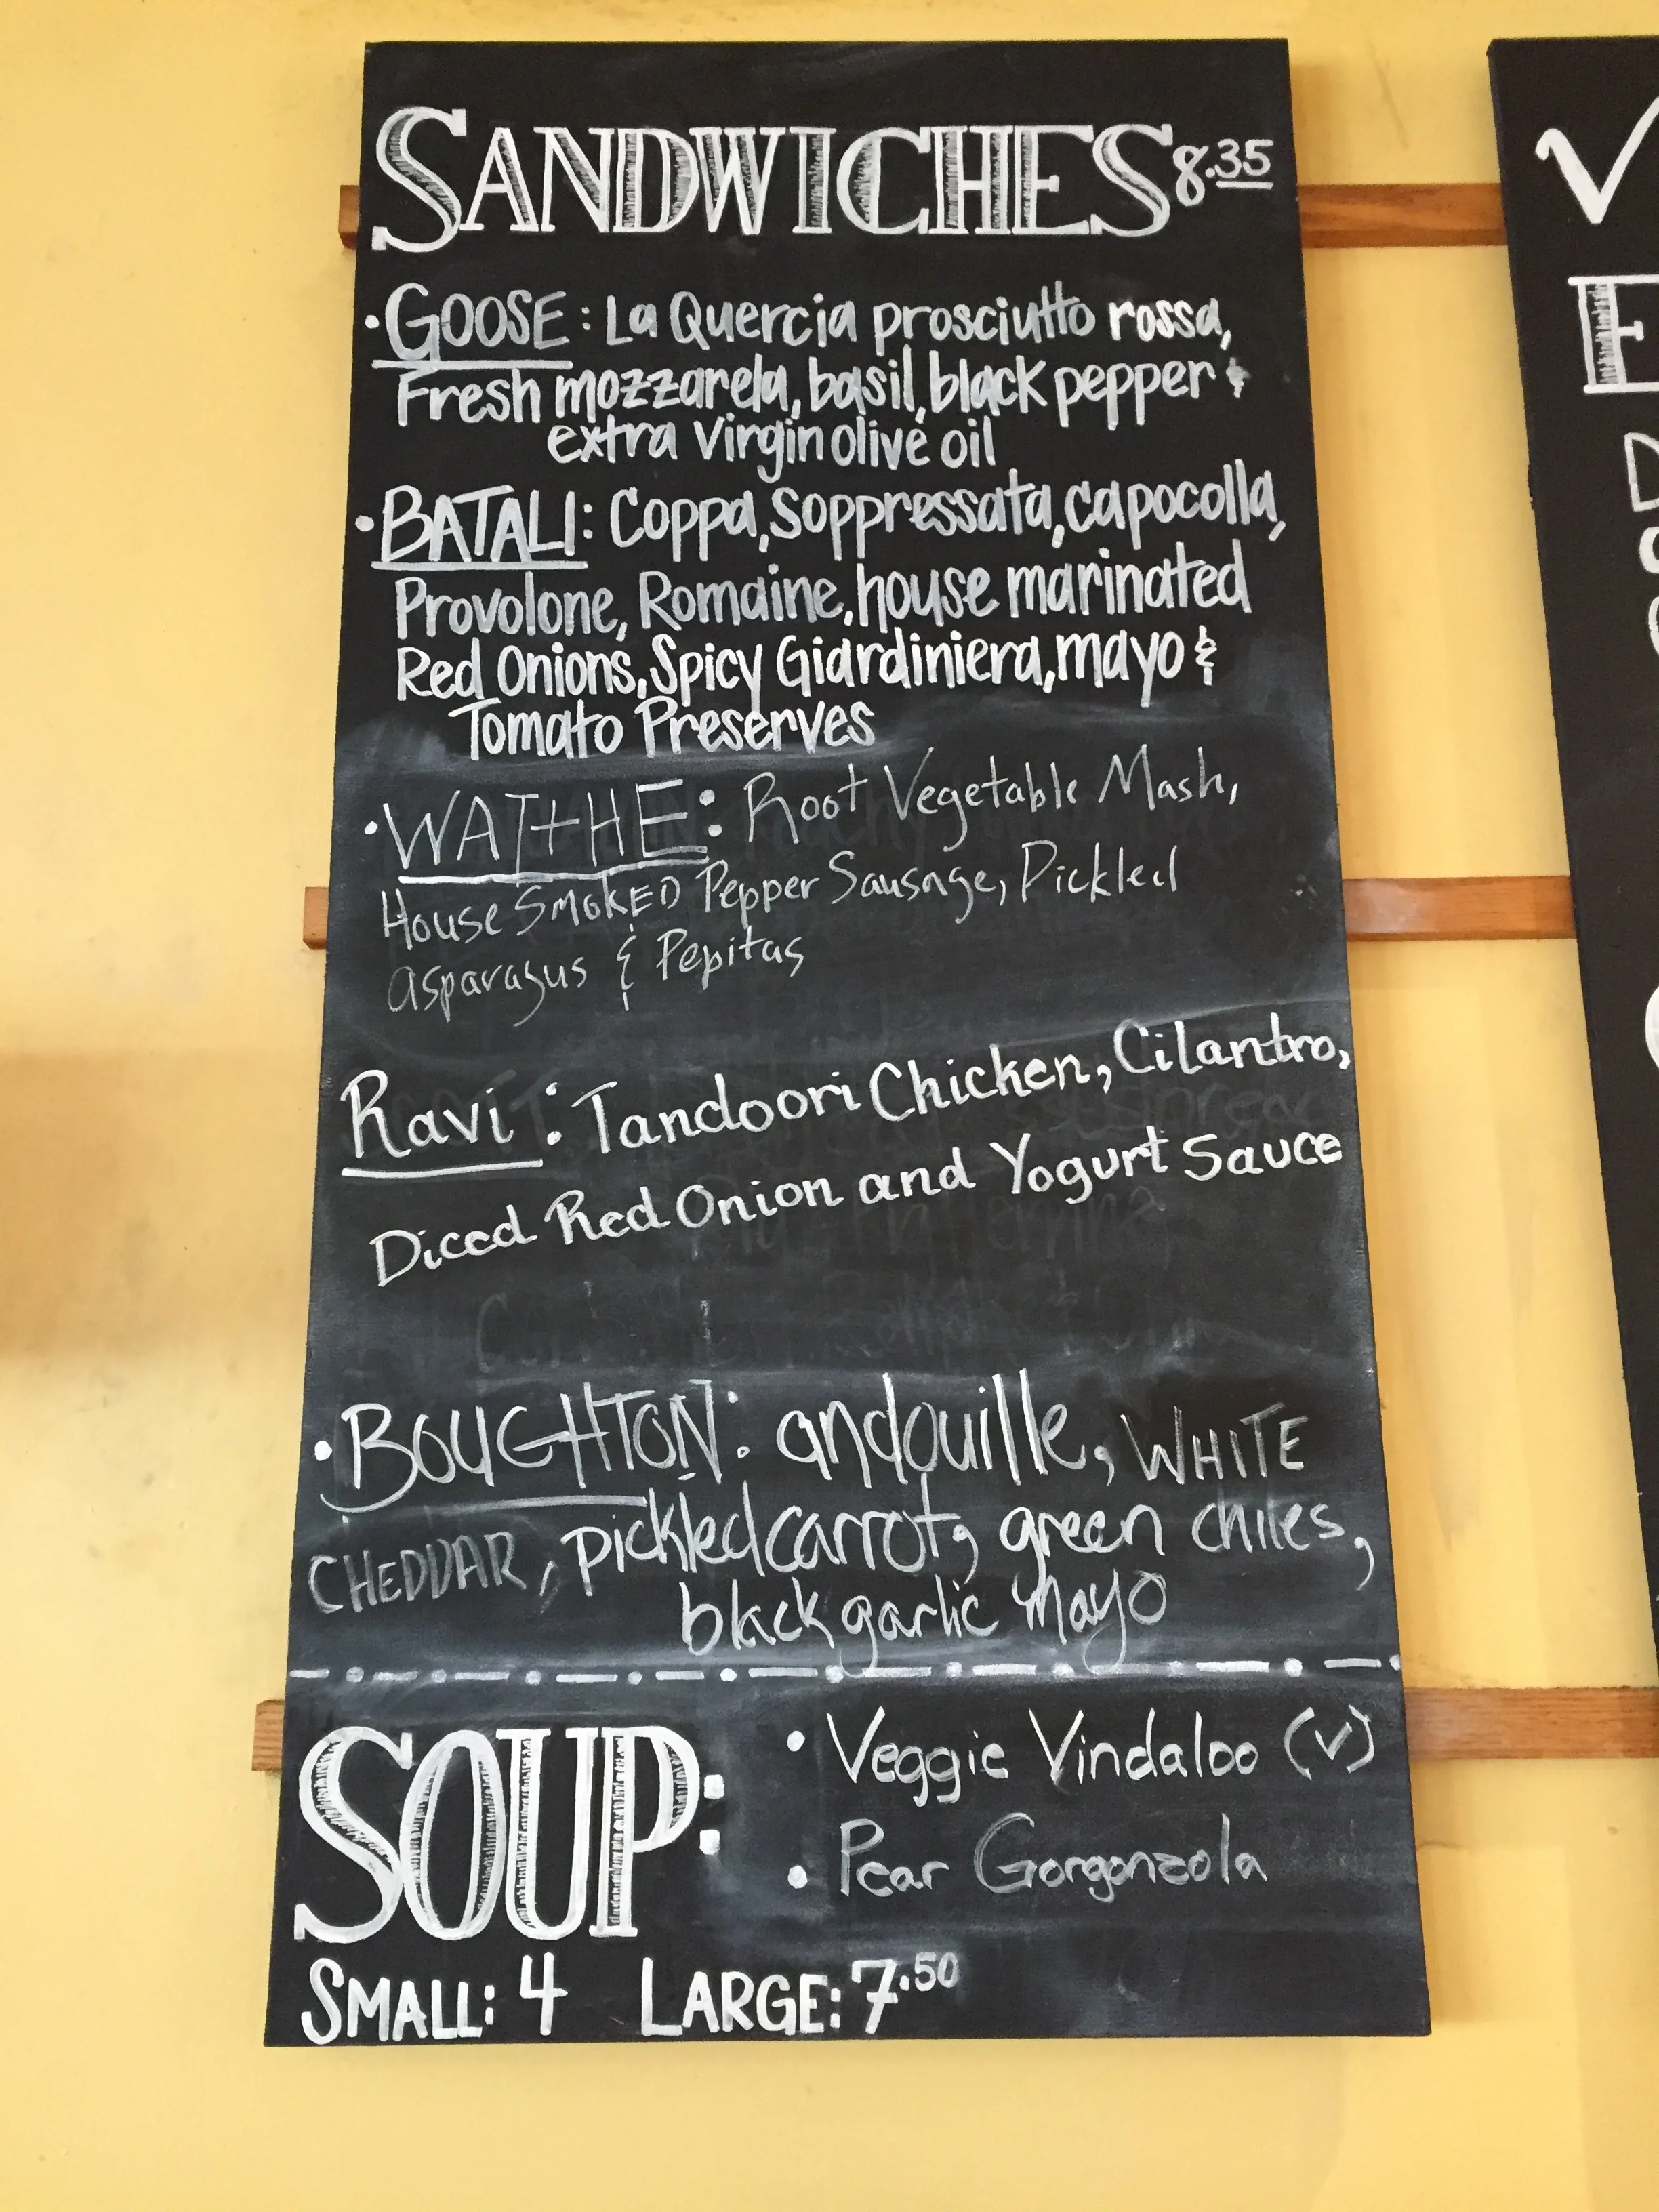 SANDWICHES 8.35
• GOOSE: La Quercia prosciutto rossa,
Fresh mozzarela, basil, black pepper &
extra Virgin olive oil
• BATALI: Coppa, Soppressata, capocolla,
Provolone, Romaine, house marinated
Red Onions, Spicy Giardiniera, mayo &
Tomato Preserves
• WATTHE: Root Vegetable Mash,
House Smoked Pepper Sausage, Pickled
asparagus & Pepitas
Ravi: Tandoori Chicken, Cilantro,
Diced Red Onion and Yogurt Sauce
• BOUGHTON: andouille, WHITE
CHEDDAR, pickled carrot, green chiles,
black garlic mayo
SOUP:
• Veggie Vindaloo (V)
• Pear Gorgonzola
SMALL: 4 LARGE: 7.50